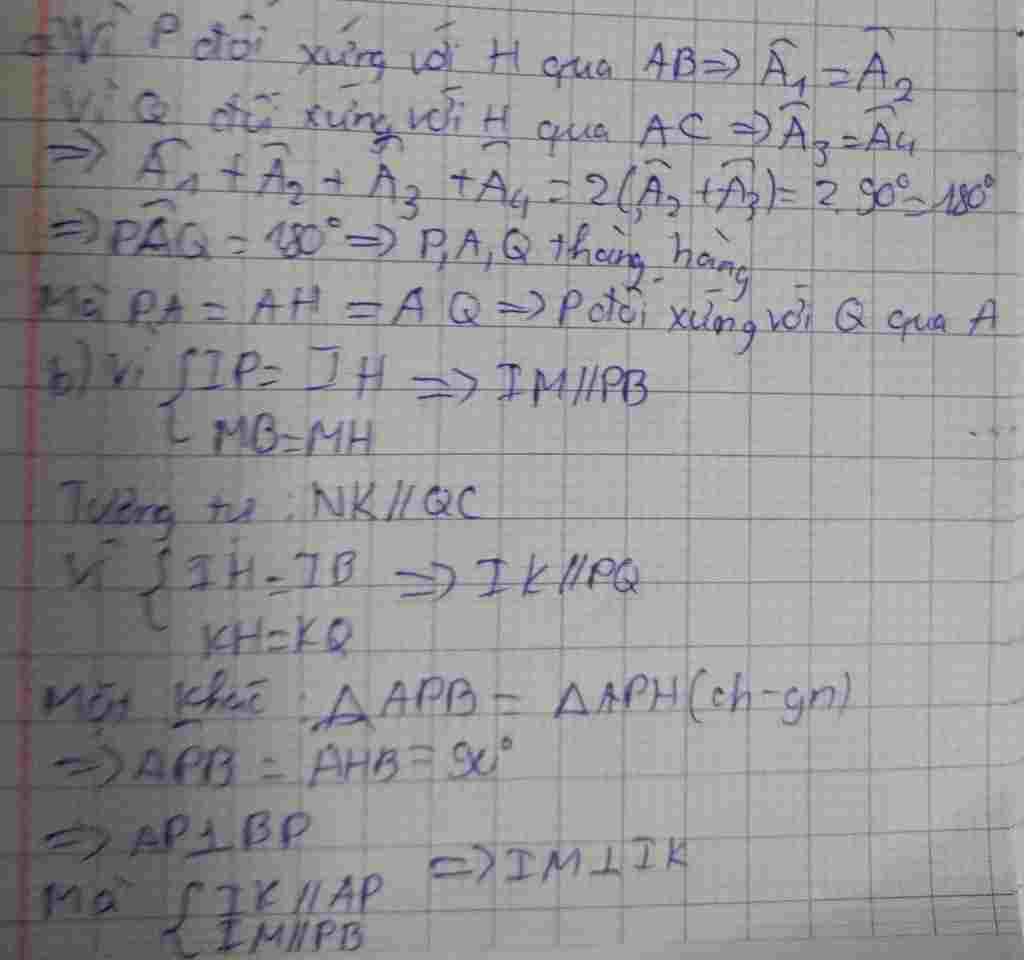 a) Vì P đối xứng với H qua AB ⇒ Â₁ = Â₂
Vì Q đối xứng với H qua AC ⇒ Â₃ = Â₄
⇒ Â₁ + Â₂ + Â₃ + Â₄ = 2(Â₂ + Â₃) = 2.90° = 180°
⇒ PÂQ = 180° ⇒ P, A, Q thẳng hàng
Mà PA = AH = AQ ⇒ P đối xứng với Q qua A
b) Vì { IP = IH ⇒ IM // PB
MB = MH
Tương tự : NK // QC
Vì { IH = IB ⇒ IK // PQ
KH = KQ
Mặt khác : ΔAPB = ΔAPH (ch-gn)
⇒ APB = AHB = 90°
⇒ AP ⊥ BP
Mà { IK // AP ⇒ IM ⊥ IK
IM // PB